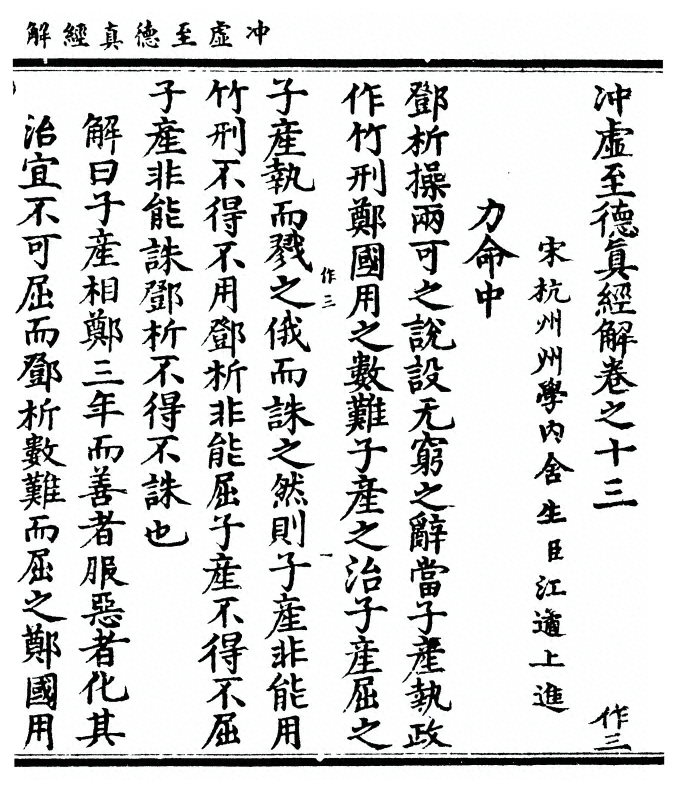 冲虛至德真經解
冲虛至德眞經解卷之十三
作三
宋杭州州學內舍生臣江遹上進
力命中
鄧析操兩可之說設无窮之辭當子產執政
作竹刑鄭國用之數難子產之治子產屈之
作三
一
子產執而戮之俄而誅之然則子產非能用
竹刑不得不用鄧析非能屈子產不得不屈
子產非能誅鄧析不得不誅也
解曰子產相鄭三年而善者服惡者化其
治宜不可屈而鄧析數難而屈之鄭國用